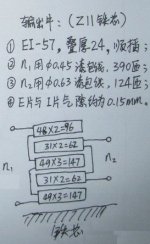 输出牛：（Z11铁芯）
① EI-57，叠厚24，顺插；
② n₁用Φ0.45漆包线，390匝；
③ n₂用Φ0.63漆包线，124匝；
④ E片与I片气隙约为0.15mm。
48×2=96
31×2=62
n₁
49×3=147
n₂
31×2=62
49×3=147
铁芯